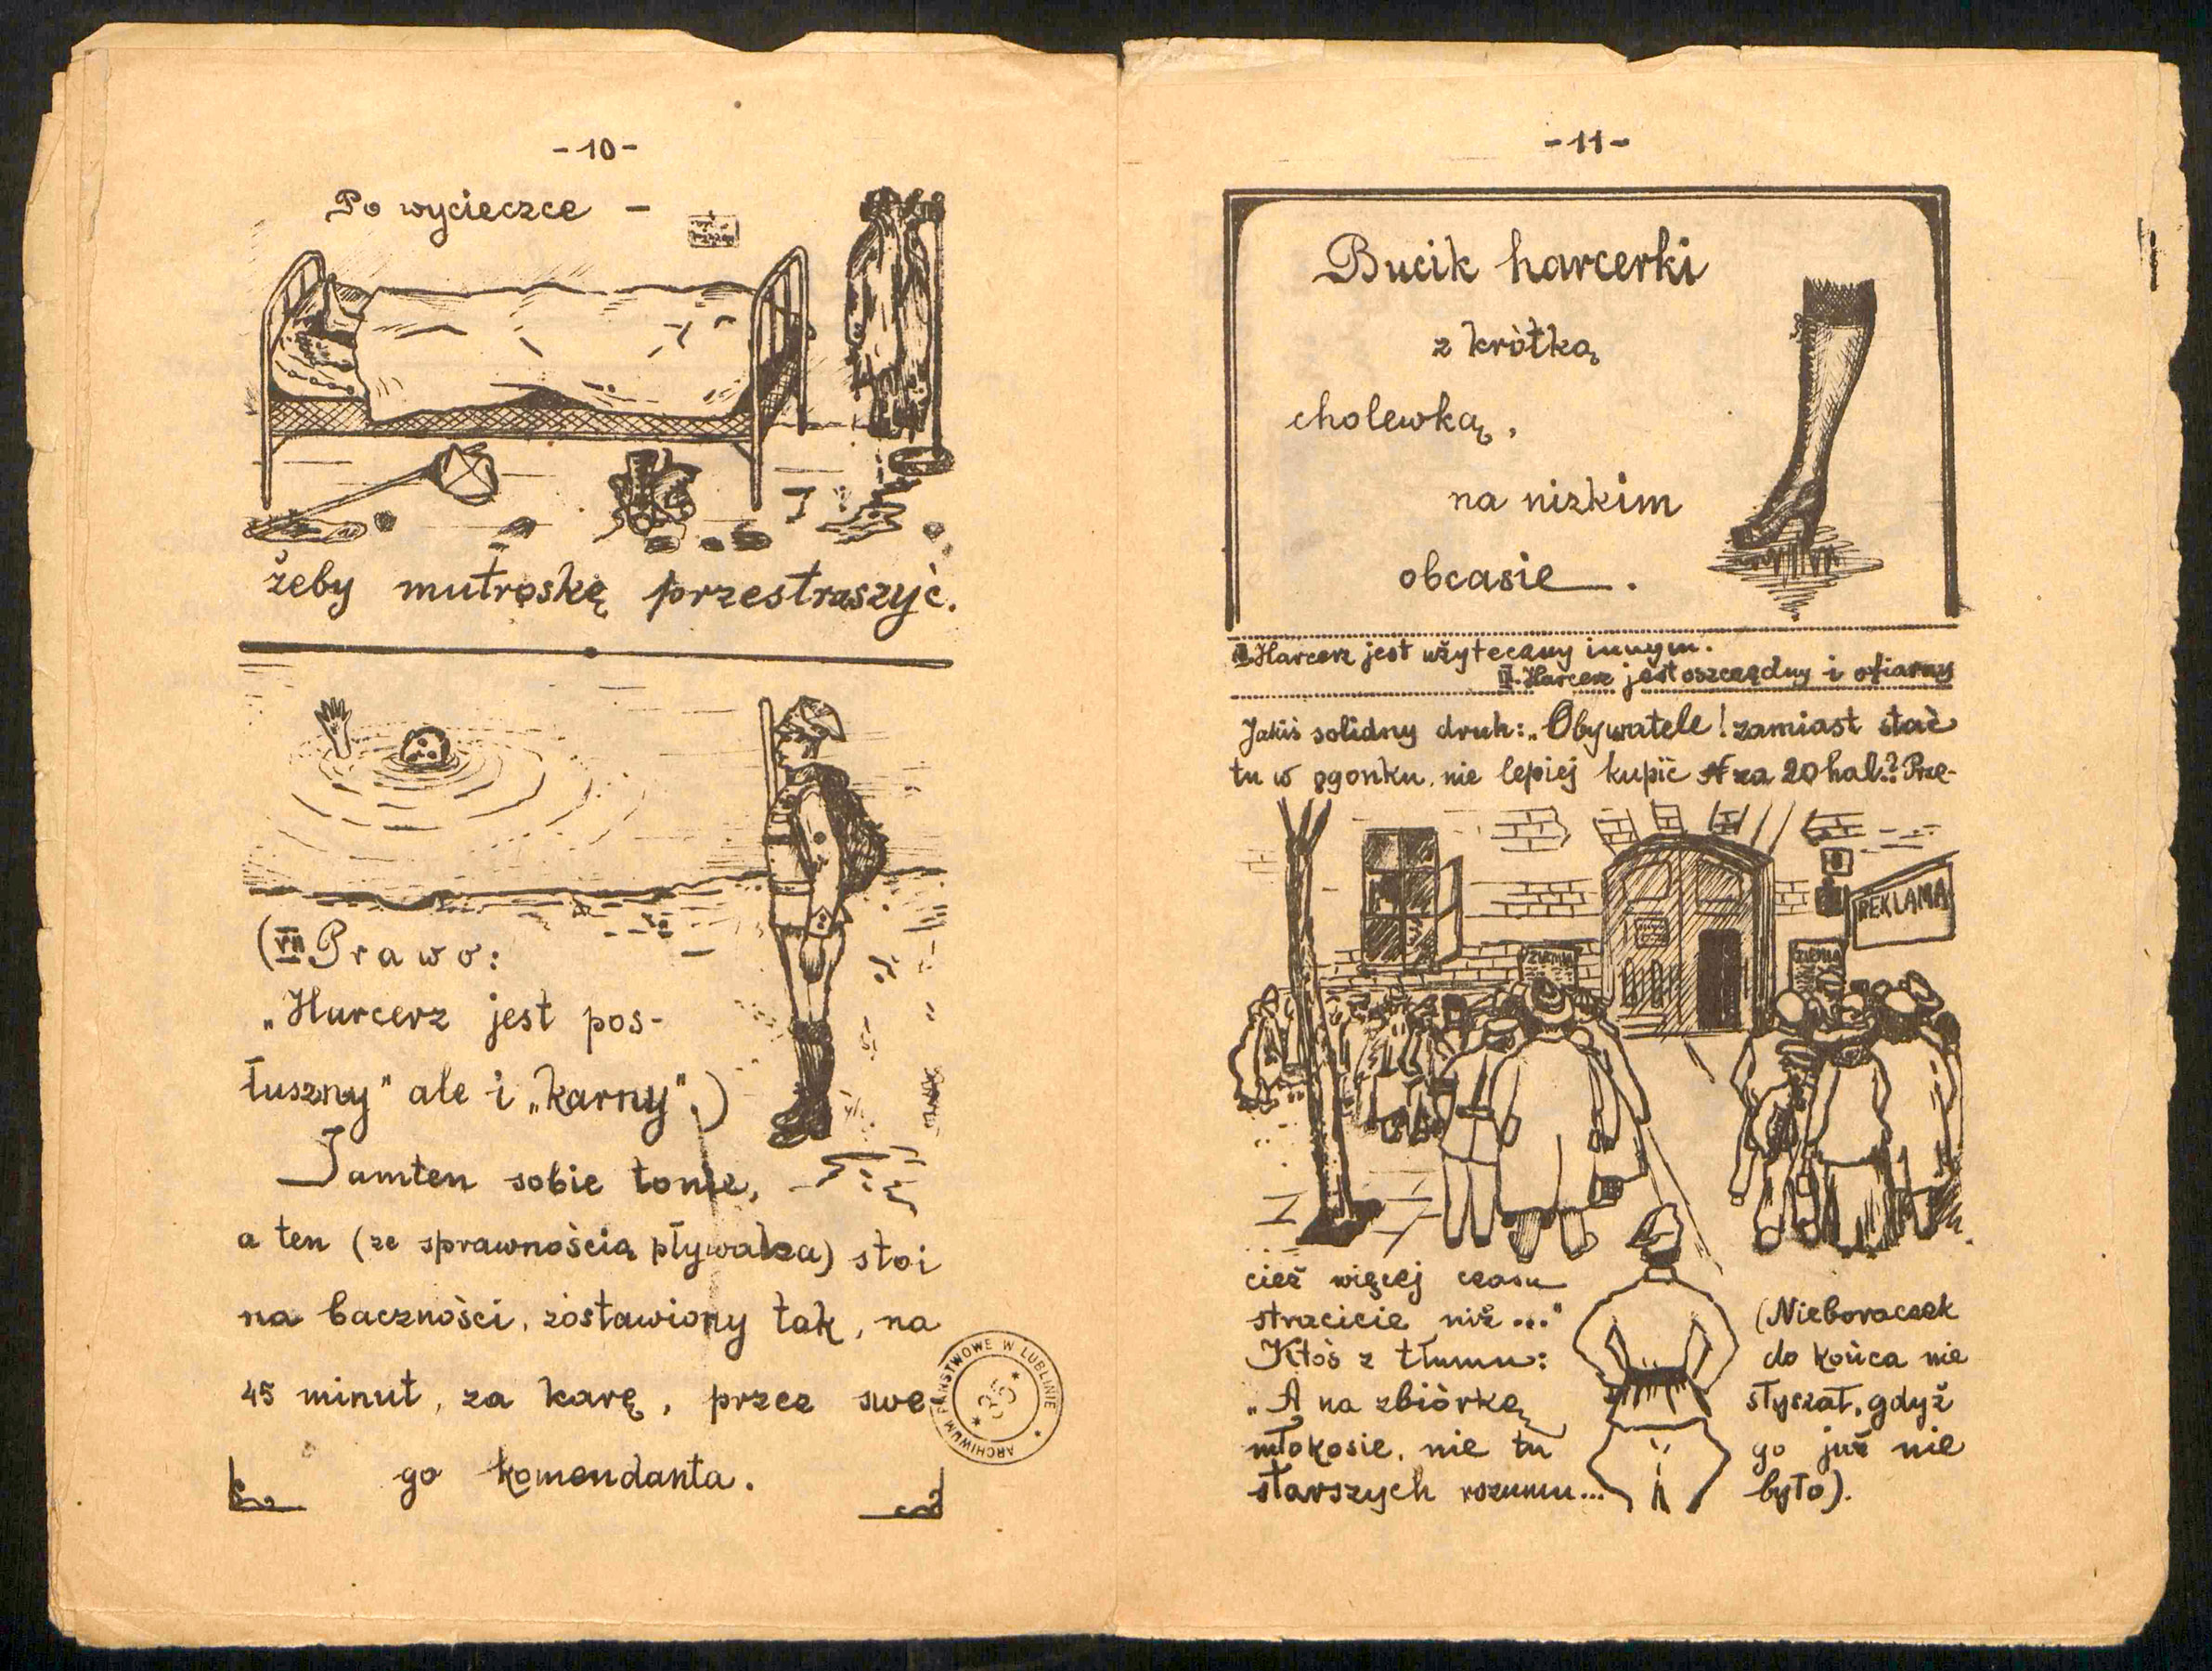 -10-
Po wycieczce -
żeby mutroskę przestraszyć.
(VII Prawo:
„Harcerz jest pos-
łuszny" ale i „karny".)
Tamten sobie tonie,
a ten (ze sprawnością pływaka) stoi
na baczności, zostawiony tak, na
45 minut, za karę, przez swe-
go komendanta.
ARCHIWUM PAŃSTWOWE W LUBLINIE
* 35 *
-11-
Bucik harcerki
z krótką
cholewką,
na nizkim
obcasie.
Harcerz jest użyteczny innym.
Harcerz jest oszczędny i ofiarny
Jakiś solidny druh: „Obywatele! zamiast stać
tu w ogonku, nie lepiej kupić N za 20 hal.? Prze-
REKLAMA
cież więcej czasu
stracicie niż..."
Ktoś z tłumu:
„A na zbiórkę
młokosie, nie tu
starszych rozumu...
(Nieboraczek
do końca nie
słyszał, gdyż
go już nie
było).